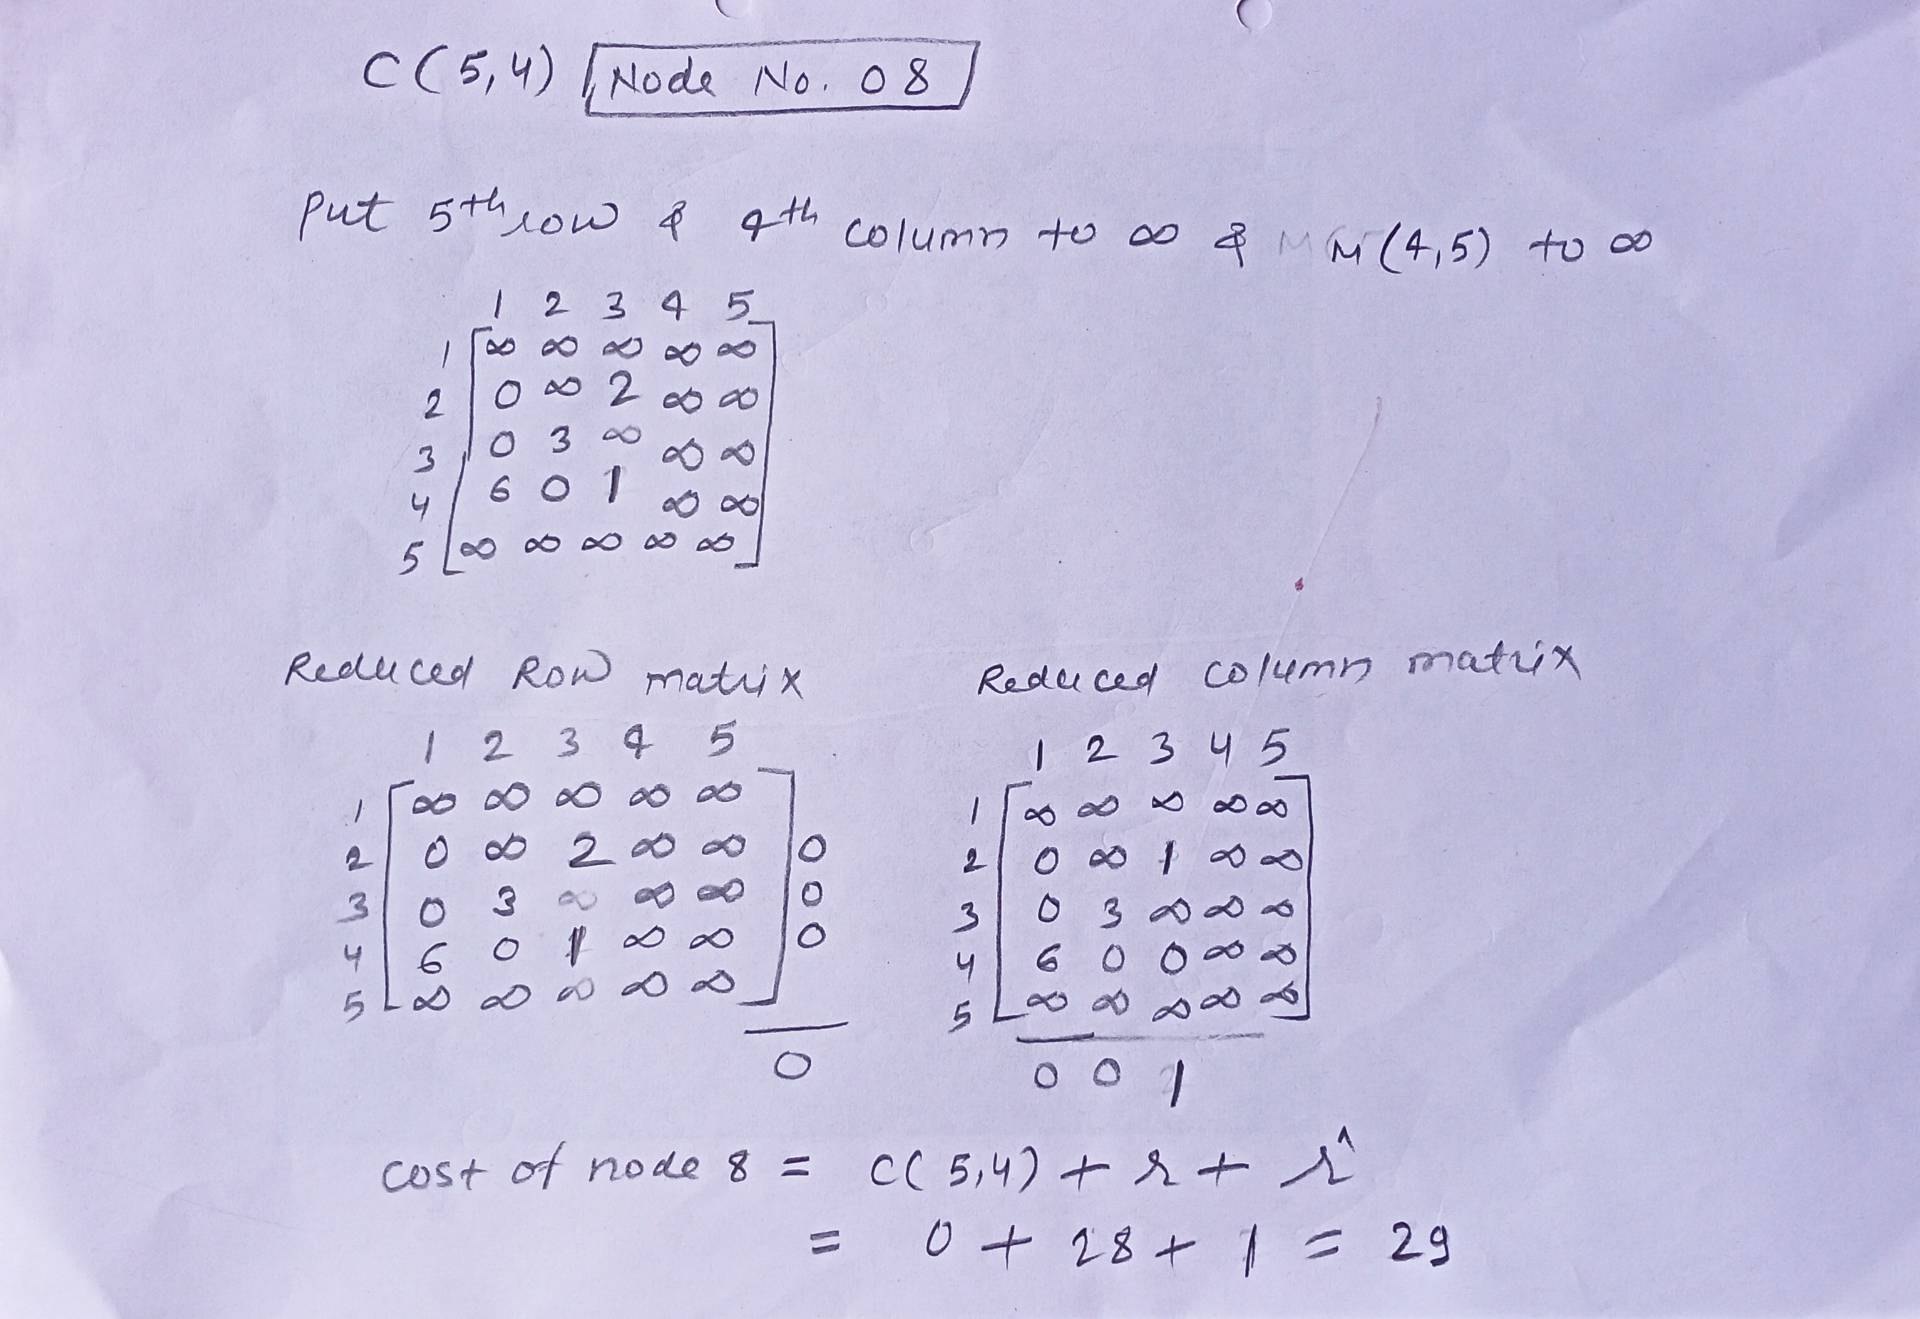 C(5,4) Node No. 08
Put 5th row & 4th column to ∞ & M(4,5) to ∞
1 2 3 4 5
1 ∞ ∞ ∞ ∞ ∞
2 0 ∞ 2 ∞ ∞
3 0 3 ∞ ∞ ∞
4 6 0 1 ∞ ∞
5 ∞ ∞ ∞ ∞ ∞
Reduced Row matrix
1 2 3 4 5
1 ∞ ∞ ∞ ∞ ∞
2 0 ∞ 2 ∞ ∞ 0
3 0 3 ∞ ∞ ∞ 0
4 6 0 1 ∞ ∞ 0
5 ∞ ∞ ∞ ∞ ∞
0
Reduced column matrix
1 2 3 4 5
1 ∞ ∞ ∞ ∞ ∞
2 0 ∞ 1 ∞ ∞
3 0 3 ∞ ∞ ∞
4 6 0 0 ∞ ∞
5 ∞ ∞ ∞ ∞ ∞
0 0 1
cost of node 8 = C(5,4) + r + r^
= 0 + 28 + 1 = 29